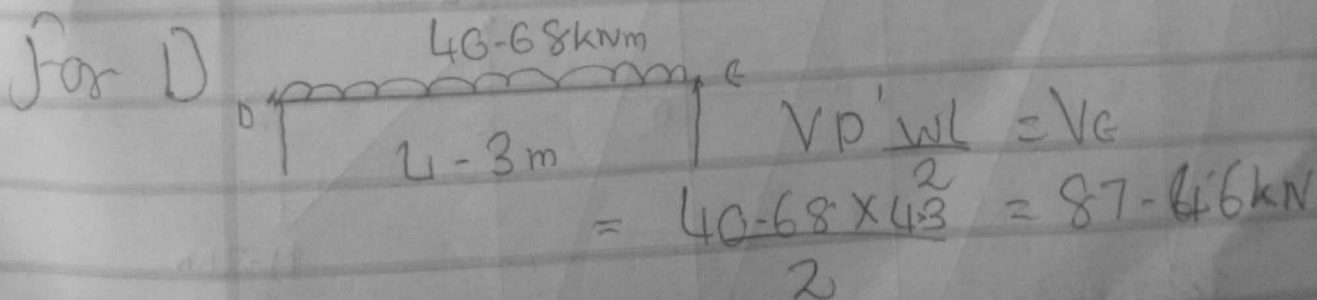 For D
40-68kNm
D e
4-3m
VD' WL/2 = Ve
= 40-68 X 4.3/2 = 87-46kN